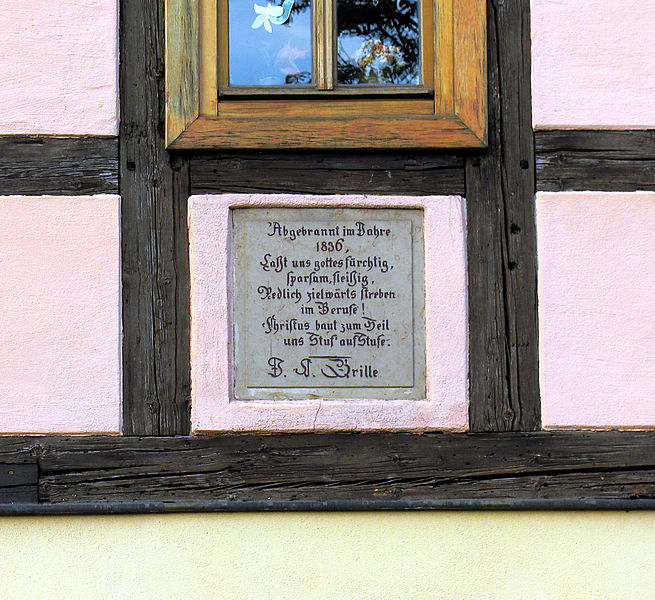 Abgebrannt im Jahre
1836,
Laßt uns gottesfürchtig,
sparsam, fleißig,
Redlich zielwärts streben
im Berufe!
Christus baut zum Heil
uns Stuf auf Stufe.
J. A. Brille